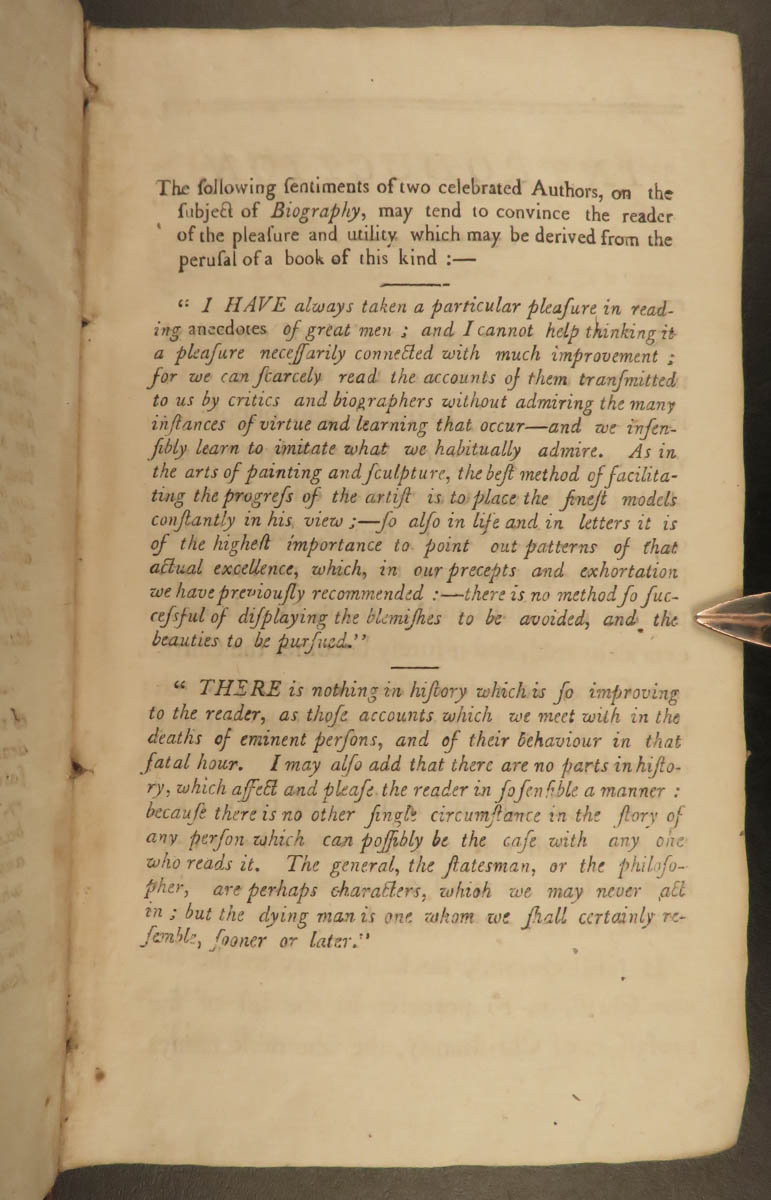 The following ſentiments of two celebrated Authors, on the
ſubject of Biography, may tend to convince the reader
of the pleaſure and utility which may be derived from the
peruſal of a book of this kind :—
“ I HAVE always taken a particular pleaſure in read-
ing anecdotes of great men ; and I cannot help thinking it
a pleaſure neceſſarily connected with much improvement ;
for we can ſcarcely read the accounts of them tranſmitted
to us by critics and biographers without admiring the many
inſtances of virtue and learning that occur—and we inſen-
ſibly learn to imitate what we habitually admire. As in
the arts of painting and ſculpture, the beſt method of facilita-
ting the progreſs of the artiſt is to place the fineſt models
conſtantly in his view ;—ſo alſo in life and in letters it is
of the higheſt importance to point out patterns of that
actual excellence, which, in our precepts and exhortation
we have previouſly recommended :—there is no method ſo ſuc-
ceſsful of diſplaying the blemiſhes to be avoided, and the
beauties to be purſued.”
“ THERE is nothing in hiſtory which is ſo improving
to the reader, as thoſe accounts which we meet with in the
deaths of eminent perſons, and of their behaviour in that
fatal hour. I may alſo add that there are no parts in hiſto-
ry, which affect and pleaſe the reader in ſo ſenſible a manner :
becauſe there is no other ſingle circumſtance in the ſtory of
any perſon which can poſſibly be the caſe with any one
who reads it. The general, the ſtatesman, or the philoſo-
pher, are perhaps characters, whioh we may never act
in ; but the dying man is one whom we ſhall certainly re-
ſemble, ſooner or later.”